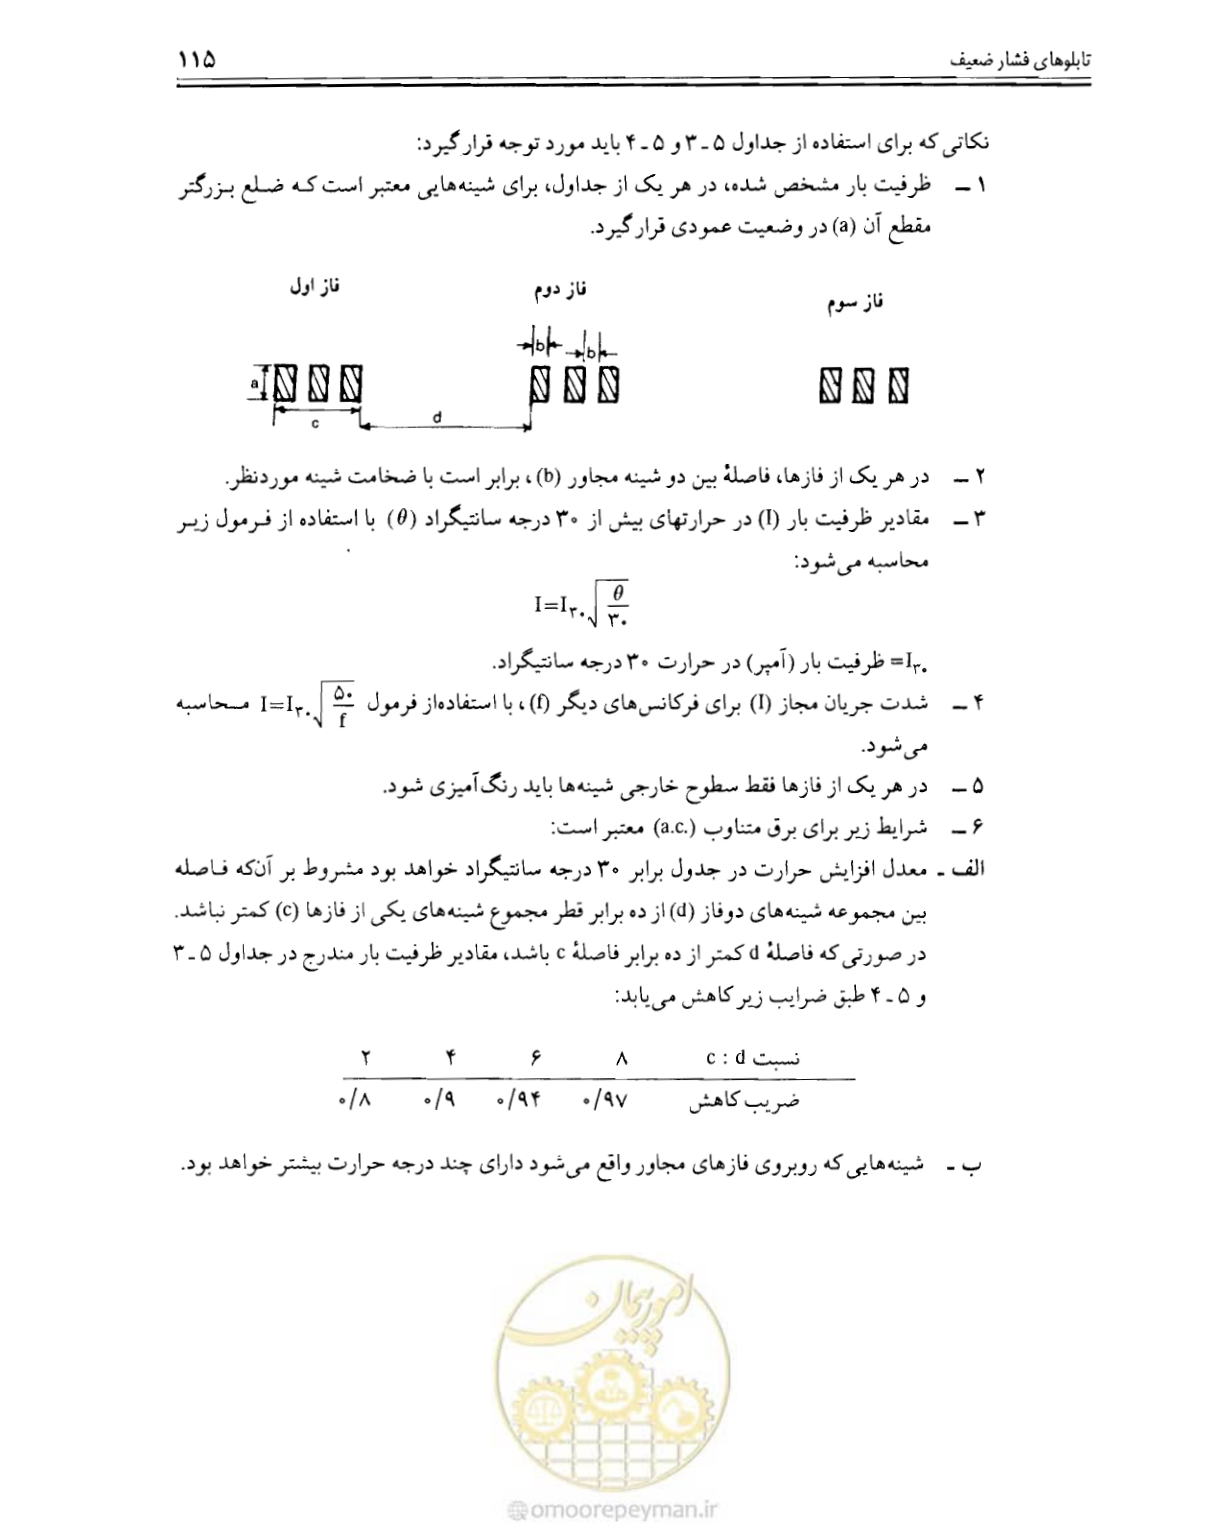 تابلوهای فشار ضعیف ۱۱۵
نکاتی که برای استفاده از جداول ۵ ـ ۳ و ۵ ـ ۴ باید مورد توجه قرار گیرد:
۱ ــ ظرفیت بار مشخص شده، در هر یک از جداول، برای شینه‌هایی معتبر است که ضلع بزرگتر
مقطع آن (a) در وضعیت عمودی قرار گیرد.
فاز اول فاز دوم فاز سوم
b b
a
c d
۲ ــ در هر یک از فازها، فاصلهٔ بین دو شینه مجاور (b)، برابر است با ضخامت شینه موردنظر.
۳ ــ مقادیر ظرفیت بار (I) در حرارتهای بیش از ۳۰ درجه سانتیگراد (θ) با استفاده از فرمول زیر
محاسبه می‌شود:
I=I۳۰√(θ/۳۰)
I۳۰= ظرفیت بار (آمپر) در حرارت ۳۰ درجه سانتیگراد.
۴ ــ شدت جریان مجاز (I) برای فرکانس‌های دیگر (f)، با استفاده‌از فرمول I=I۳۰√(۵۰/f) محاسبه
می‌شود.
۵ ــ در هر یک از فازها فقط سطوح خارجی شینه‌ها باید رنگ‌آمیزی شود.
۶ ــ شرایط زیر برای برق متناوب (a.c.) معتبر است:
الف ـ معدل افزایش حرارت در جدول برابر ۳۰ درجه سانتیگراد خواهد بود مشروط بر آن‌که فاصله
بین مجموعه شینه‌های دوفاز (d) از ده برابر قطر مجموع شینه‌های یکی از فازها (c) کمتر نباشد.
در صورتی که فاصلهٔ d کمتر از ده برابر فاصلهٔ c باشد، مقادیر ظرفیت بار مندرج در جداول ۵ ـ ۳
و ۵ ـ ۴ طبق ضرایب زیر کاهش می‌یابد:
نسبت c : d ۸ ۶ ۴ ۲
ضریب کاهش ۰/۹۷ ۰/۹۴ ۰/۹ ۰/۸
ب ـ شینه‌هایی که روبروی فازهای مجاور واقع می‌شود دارای چند درجه حرارت بیشتر خواهد بود.
امور پیمان
@omoorepeyman.ir